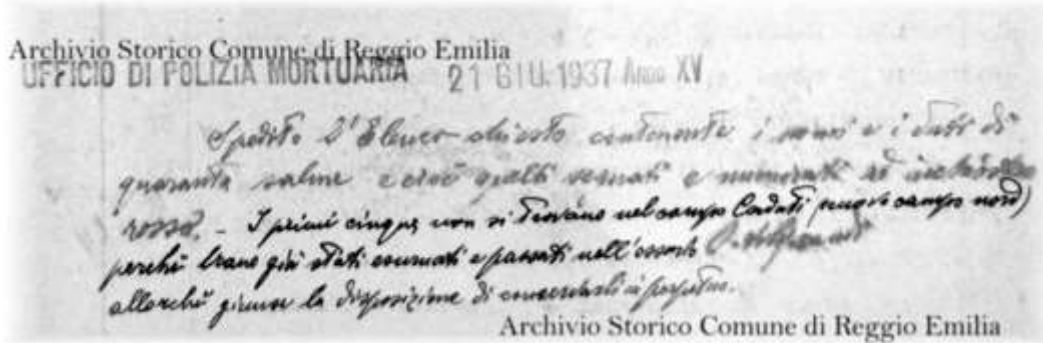 Archivio Storico Comune di Reggio Emilia
UFFICIO DI POLIZIA MORTUARIA 21 GIU. 1937 Anno XV
Spedito l'Elenco chiesto contenente i nomi e i dati di
quaranta salme e cioè quelli segnati e numerati ad inchiostro
rosso. - I primi cinque non si trovano nel campo Caduti (nuovo campo nord)
perchè erano già stati esumati e passati nell'ossario
allorchè giunse la disposizione di conservarli in perpetuo.
Archivio Storico Comune di Reggio Emilia